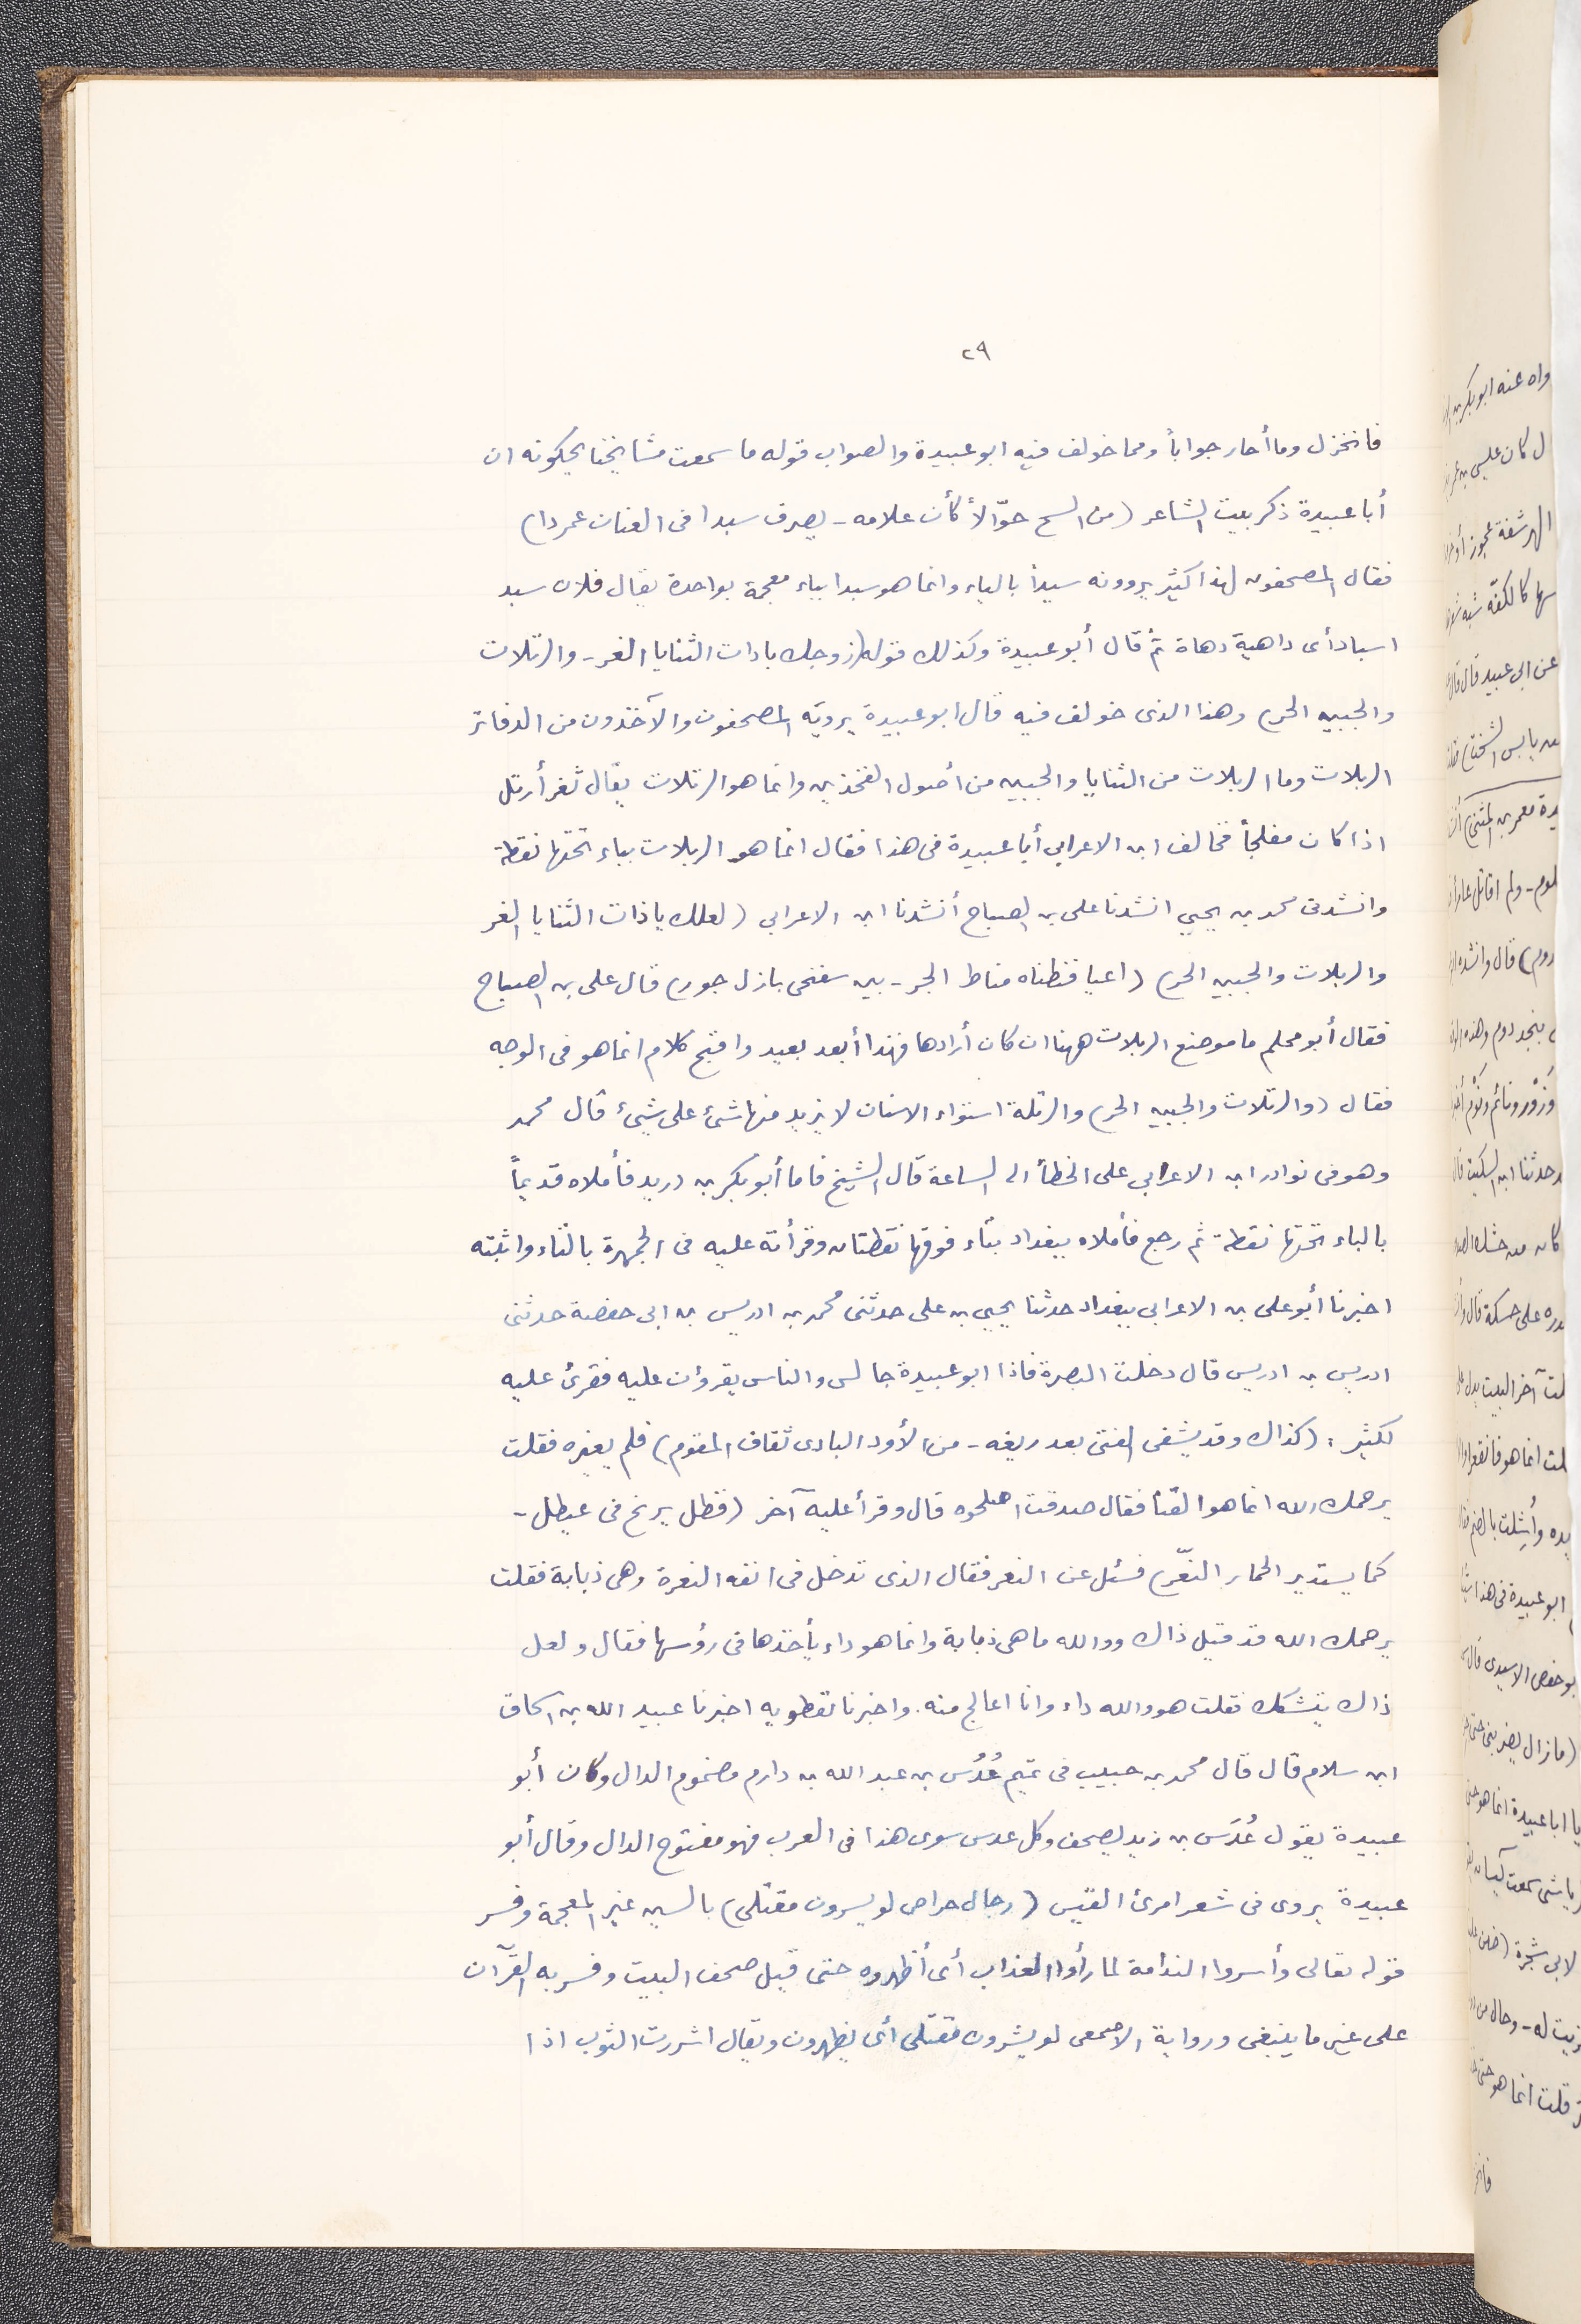 ٢٩
فانخزل وما أحار جواباً ومما خولف فيه ابو عبيدة والصواب قوله ما سمعت مشايخنا يحكونه ان
أبا عبيدة ذكر بيت الشاعر (من السح جوّالاً كأن غلامه - يصرف سبدا فى العنان عمردا)
فقال المصحفون لهذا كثير يروونه سيداً بالياء وانما هو سبدا بباء معجمة بواحدة يقال فلان سبد
اسباد أى داهية دهاة ثم قال أبو عبيدة وكذلك قوله (زوجك ياذات الثنايا الغر - والرتلات
والجبين الحر) وهذا الذى خولف فيه قال ابو عبيدة يرويه المصحفون والآخذون من الدفاتر
الربلات وما الربلات من الثنايا والجبين من أصول الفخذين وانما هو الرتلات يقال ثغر أرتل
اذا كان مفلجاً فخالف ابن الاعرابى أبا عبيدة فى هذا فقال انما هو الربلات بباء تحتها نقطة
وانشدنى محمد بن يحيى انشدنا على بن الصباح أنشدنا ابن الاعرابى (لعلك ياذات الثنايا الغر
والربلات والجبين الحر) (اعيا فنطناه مناط الجر - بين سفنحى بازل جور) قال على بن الصباح
فقال أبو محلم ما موضع الربلات ههنا ان كان أرادها فهذا أبعد بعيد واقبح كلام انما هو فى الوجه
فقال (والرتلات والجبين الحر) والرتلة استواء الاسنان لا يزيد منها شئ على شئ قال محمد
وهو فى نوادر ابن الاعرابى على الخطأ الى الساعة قال الشيخ فاما أبو بكر بن دريد فأملاه قديماً
بالباء تحتها نقطة ثم رجع فأملاه ببغداد بتاء فوقها نقطتان وقرأته عليه فى الجمهرة بالتاء واثبته
اخبرنا أبو على بن الاعرابى ببغداد حدثنا يحيى بن على حدثنى محمد بن ادريس بن ابى حفصة حدثنى
ادريس بن ادريس قال دخلت البصرة فاذا ابو عبيدة جالس والناس يقرؤن عليه فقرئ عليه
لكثير : (كذاك وقد يشفى الفتى بعد ريغه - من الأود البادى ثقاف المقوم) فلم يغيره فقلت
يرحمك الله انما هو القنا فقال صدقت اصلحوه قال وقرأ عليه آخر (فظل يرنح فى غيطل -
كما يستدير الحمار النعّر) فسئل عن النعر فقال الذى تدخل فى انفه النعرة وهى ذبابة فقلت
يرحمك الله قد قيل ذاك ووالله ما هى ذبابة وانما هو داء يأخذها فى رؤسها فقال ولعل
ذاك يتشكك فقلت هو والله داء وانا اعالج منه. واخبرنا نفطويه اخبرنا عبيد الله بن اسحاق
ابن سلام قال قال محمد بن حبيب فى تميم عُدُس بن عبد الله بن دارم مضموم الدال وكان أبو
عبيدة يقول عُدَس بن زيد يصحف وكل عدس سوى هذا فى العرب فهو مفتوح الدال وقال أبو
عبيدة يروى فى شعر امرئ القيس (رجال حراص لو يسرون مقتلى) بالسين غير المعجمة وفسر
قوله تعالى وأسروا الندامة لما رأوا العذاب أى أظهروه حتى قيل صحف البيت وفسر به القرآن
على غير ما ينبغى ورواية الاصمعى لو يشرون مقتلى أى يظهرون ويقال اشررت الثوب اذا